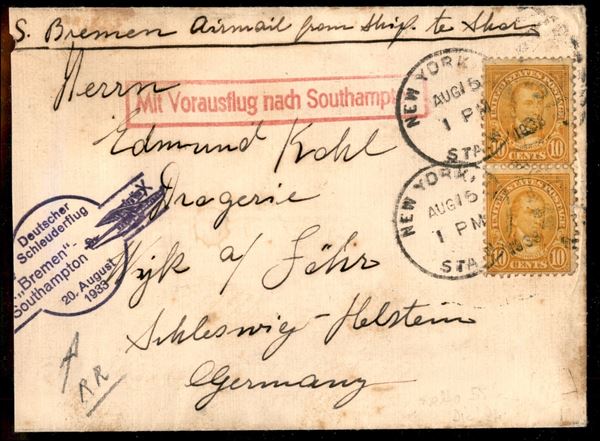 S. Bremen Airmail from Ship to Shor
Herrn
Mit Vorausflug nach Southampt
Edmund Kohl
Drogerie
Wyk a/ Föhr
Schleswig-Holstein
Germany
NEW YORK,
AUG 15
1 PM
STA.
1933
NEW YORK,
AUG 15
1 PM
STA.
1933
UNITED STATES POSTAGE
10 CENTS 10
UNITED STATES POSTAGE
10 CENTS 10
Deutscher
Schleuderflug
"Bremen"-
Southampton
20. August
1933
RR